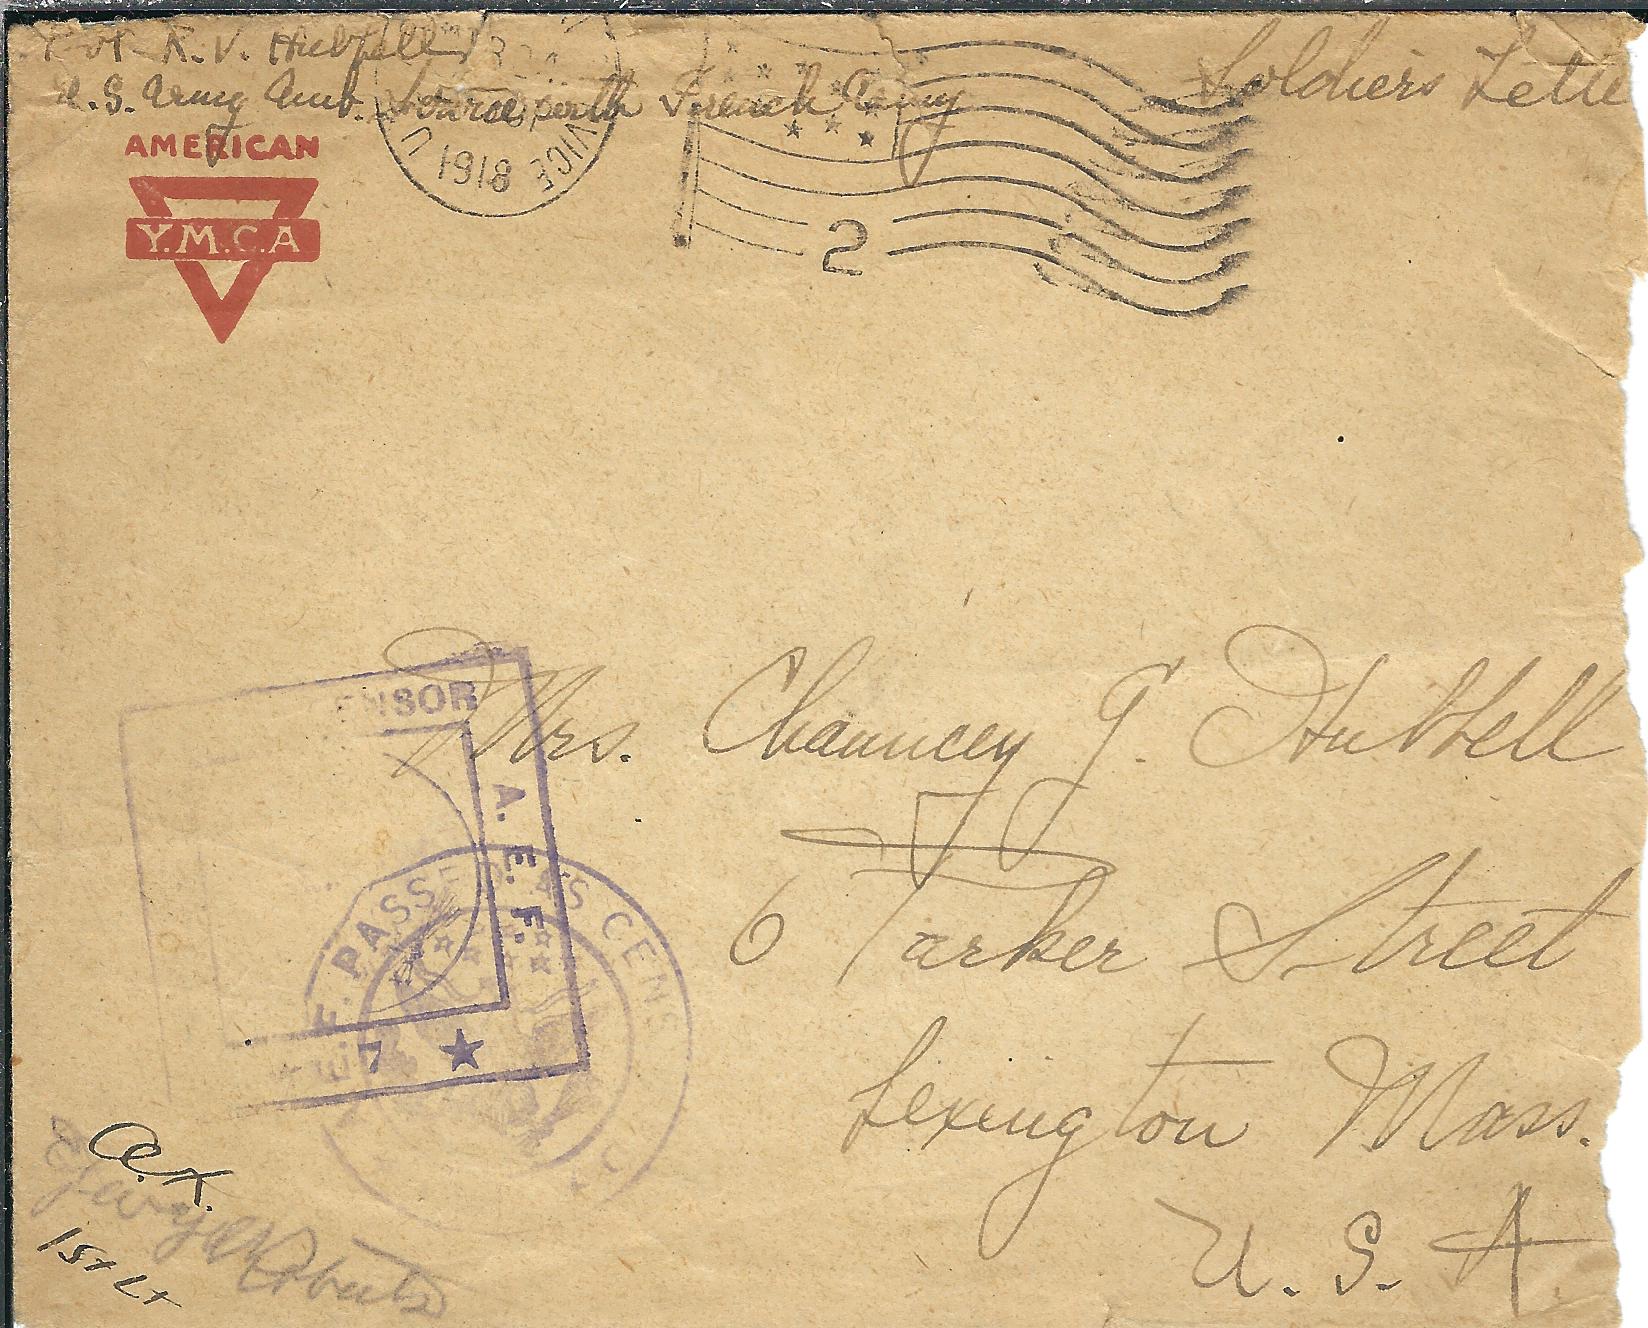 R. V. Hubbell
U. S. Army Amb. Service with French Army
Soldiers Lette
1918
VICE
2
AMERICAN
Y.M.C.A
ENSOR
A. E. F.
PASSED AS CENS
7
Mrs. Chauncey G. Hubbell
6 Parker Street
Lexington Mass.
U. S. A
O.K.
George Roberts
1st Lt